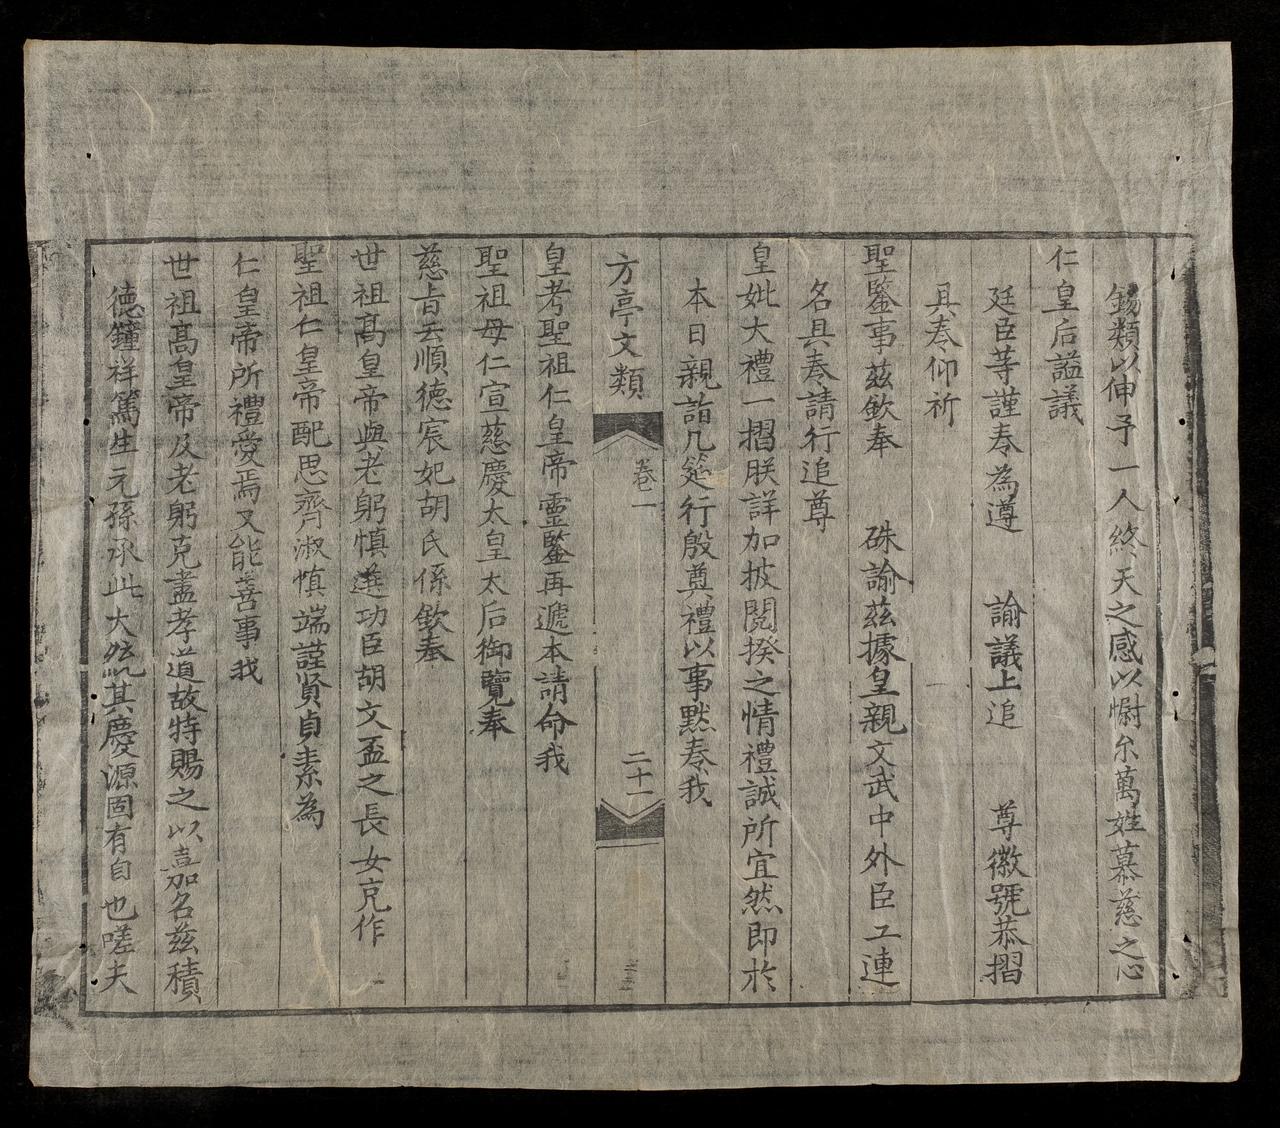 錫類以伸予一人終天之感以慰尔萬姓慕慈之心
仁皇后謚議
廷臣等謹奏為遵 諭議上追 尊徽號恭摺
具奏仰祈
聖鑒事茲欽奉 硃諭茲據皇親文武中外臣工連
名具奏請行追尊
皇妣大禮一摺朕詳加披閱揆之情禮誠所宜然即於
本日親詣几筵行殷奠禮以事默奏我
方亭文類 卷二 二十一
皇考聖祖仁皇帝靈鑒再遞本請命我
聖祖母仁宣慈慶太皇太后御覽奉
慈旨云順德宸妃胡氏係欽奉
世祖高皇帝與老躬慎選功臣胡文盃之長女克作
聖祖仁皇帝配思齊淑慎端謹賢貞素為
仁皇帝所禮愛焉又能善事我
世祖高皇帝及老躬克盡孝道故特賜之以嘉名茲積
德鐘祥篤生元孫承此大統其慶源固有自也嗟夫